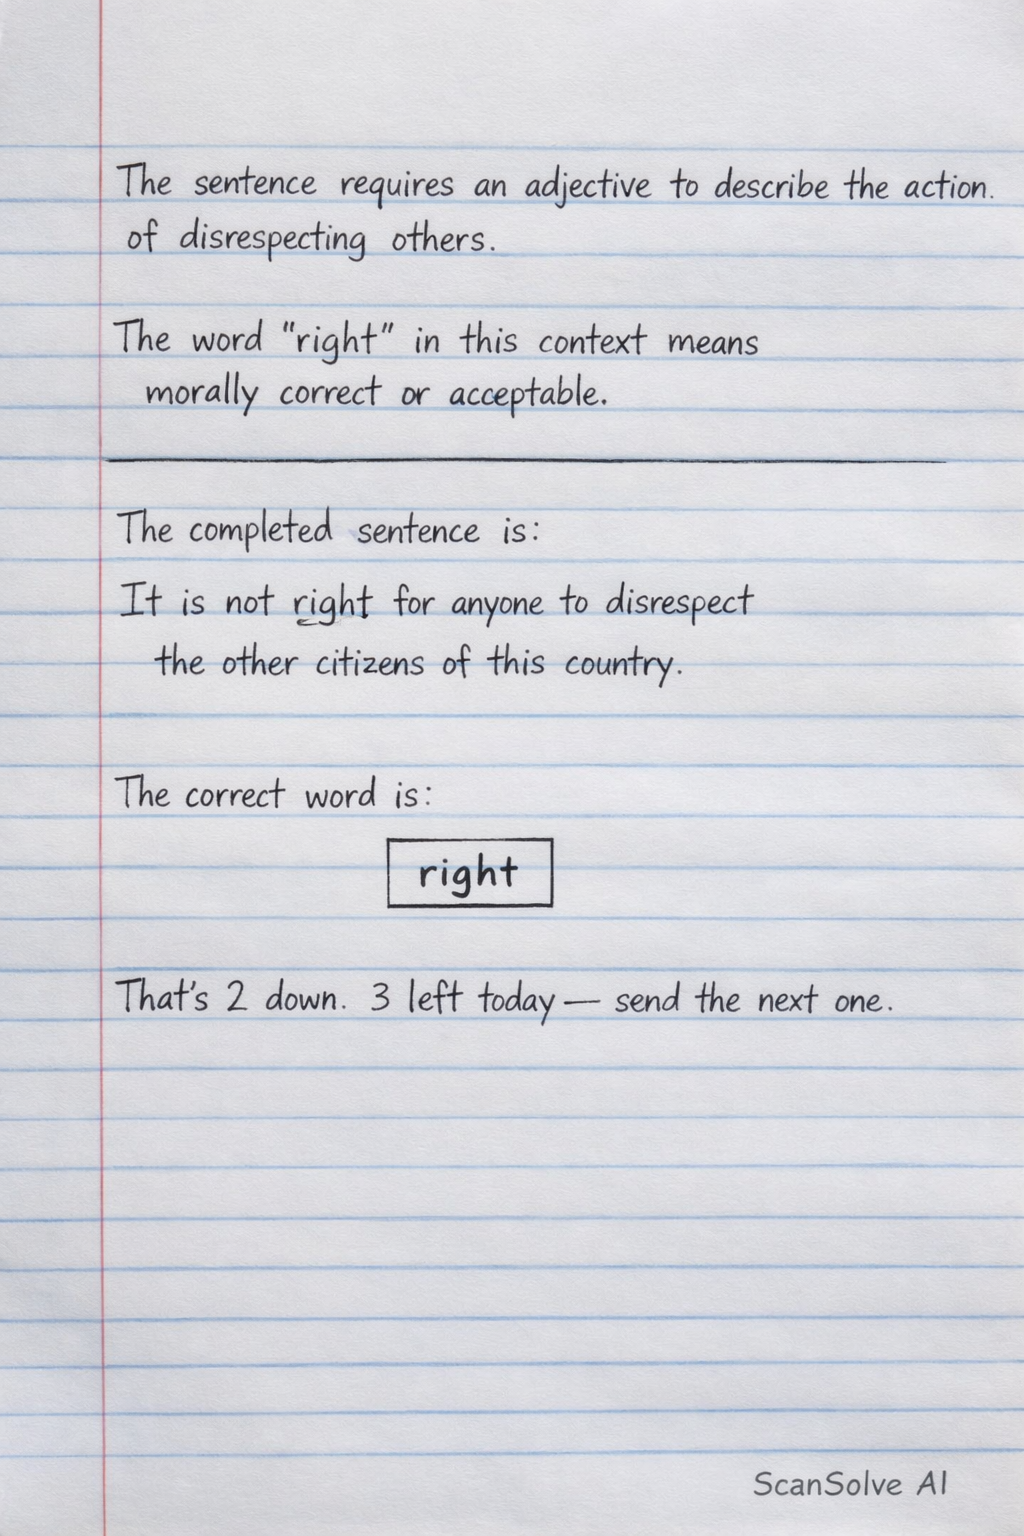 The sentence requires an adjective to describe the action.
of disrespecting others.
The word "right" in this context means
morally correct or acceptable.
The completed sentence is:
It is not right for anyone to disrespect
the other citizens of this country.
The correct word is:
right
That's 2 down. 3 left today — send the next one.
ScanSolve AI